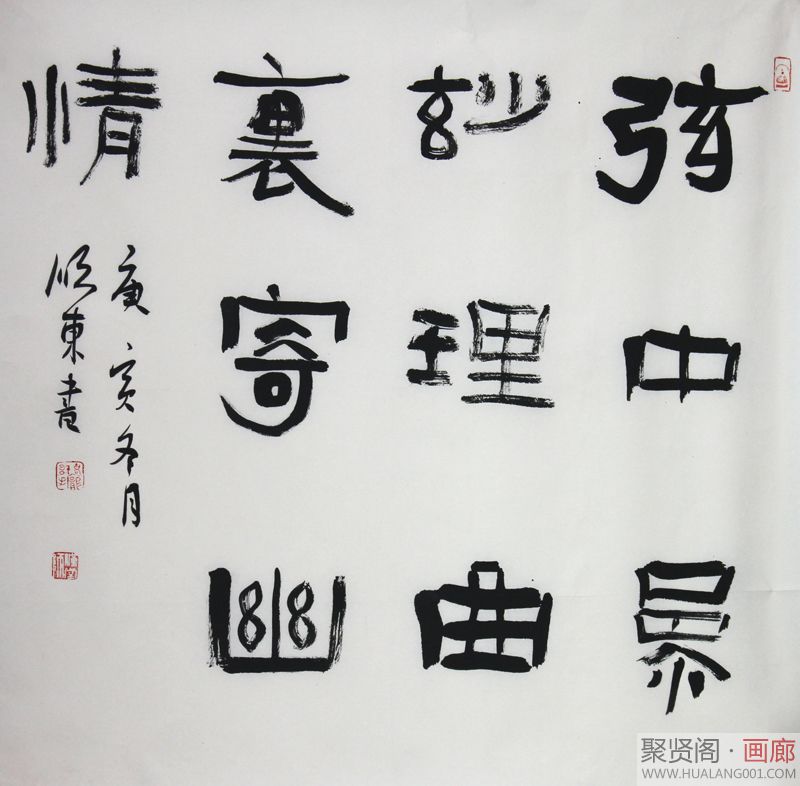 弦中
玅理曲
裏寄幽
情
庚寅冬月
順東書
聚贤阁·画廊
WWW.HUALANG001.COM